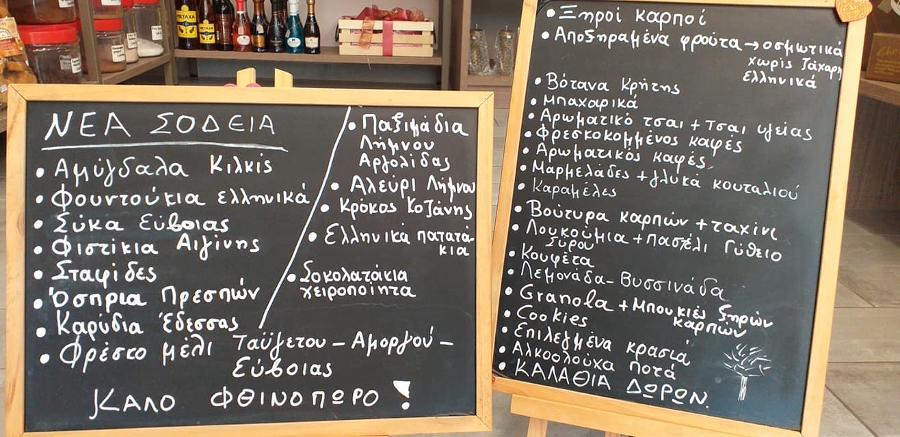 ΝΕΑ ΣΟΔΕΙΑ
• Αμύγδαλα Κιλκίς
• Φουντούκια ελληνικά
• Σύκα Εύβοιας
• Φιστίκια Αιγίνης
• Σταφίδες
• Όσπρια Πρεσπών
• Καρύδια Έδεσσας
• Φρέσκο μέλι Ταϋγετου - Αμοργού -
Εύβοιας
• Παξιμάδια
Λήμνου
Αργολίδας
• Αλεύρι Λήμνου
• Κρόκος Κοζάνης
• Ελληνικά πατατά-
κια
• Σοκολατάκια
χειροποίητα
ΚΑΛΟ ΦΘΙΝΟΠΩΡΟ !
• Ξηροί καρποί
• Αποξηραμένα φρούτα → οσμωτικά
χωρίς ζάχαρη
Ελληνικά
• Βότανα Κρήτης
• Μπαχαρικά
• Αρωματικό τσαι + Τσαι υγείας
• Φρεσκοκομμένος καφές
• Αρωματικός καφές
• Μαρμελάδες + γλυκά κουταλιού
• Καραμέλες
• Βούτυρα καρπών + ταχίνι
• Λουκούμια + παστέλι Γύθειο
Σύρου
• Κουφέτα
• Λεμονάδα - Βυσσινάδα
• Granola + Μπουκιές ξηρών
καρπών
• Cookies
• Επιλεγμένα κρασιά
• Αλκοολούχα ποτά
• ΚΑΛΑΘΙΑ ΔΩΡΩΝ.
METAXA